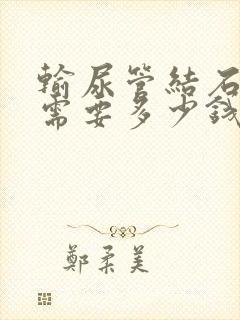 輸尿管結石
需要多少錢
鄭柔美